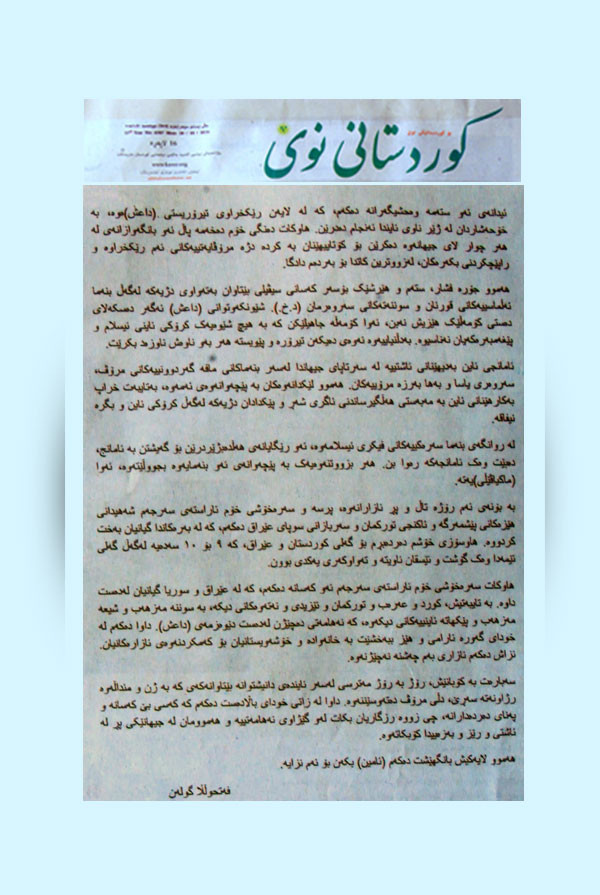 کوردستانی نوێ
ئیدانەی ئەو ستەمە وەحشیگەرانە دەکەم، کە لە لایەن رێکخراوی تیرۆریستی (داعش)ەوە، بە
خۆحەشاردان لە ژێر ناوی ئایندا ئەنجام دەدرێن. هاوکات دەنگی خۆم دەخەمە پاڵ ئەو بانگەوازانەی لە
هەر چوار لای جیهانەوە دەکرێن بۆ کۆتاییهێنان بە کردە دژە مرۆڤایەتییەکانی ئەم رێکخراوە و
راپێچکردنی بکەرەکان، لەزووترین کاتدا بۆ بەردەم دادگا.
هەموو جۆرە فشار، ستەم و هێرشێک بۆسەر کەسانی سیڤیلی بێتاوان بەتەواوی دژیەکە لەگەڵ بنەما
ئەڵماسییەکانی قورئان و سوننەتەکانی سەروەرمان (د.خ.). شێونکەوتوانی (داعش) ئەگەر دەسکەلای
دەستی کۆمەڵێک هێزیش نەبن، ئەوا کۆمەڵە جاهیلێکن کە بە هیچ شێوەیەک کرۆکی ئاینی ئیسلام و
پێغەمبەرەکەیان نەناسیوە. بەدڵنیاییەوە ئەوەی دەیکەن تیرۆرە و پێویستە هەر بەو ناوەش ناوزەد بکرێت.
ئامانجی ئاین بەدیهێنانی ئاشتییە لە سەرتاپای جیهاندا لەسەر بنەماکانی مافە گەردوونییەکانی مرۆڤ،
سەروەری یاسا و بەها بەرزە مرۆییەکان. هەموو لێکدانەوەکان بە پێچەوانەی ئەمەوە، بەتایبەت خراپ
بەکارهێنانی ئاین بە مەبەستی هەڵگیرساندنی ئاگری شەڕ و پێکدادان دژیەکە لەگەڵ کرۆکی ئاین و بگرە
نیفاقە.
لە روانگەی بنەما سەرەکییەکانی فیکری ئیسلامەوە، ئەو رێگایانەی هەڵدەبژێردرێن بۆ گەیشتن بە ئامانج،
دەبێت وەک ئامانجەکە رەوا بن. هەر بزووتنەوەیەک بە پێچەوانەی ئەو بنەمایەوە بجووڵێتەوە، ئەوا
(ماکیاڤێلی)یەتە.
بە بۆنەی ئەم رۆژە تاڵ و پڕ ئازارانەوە، پرسە و سەرەخۆشی خۆم ئاراستەی سەرجەم شەهیدانی
هێزەکانی پێشمەرگە و ئاکنجی تورکمان و سەربازانی سوپای عێراق دەکەم، کە لە بەرەکاندا گیانیان بەخت
کردووە. هاوسۆزی خۆشم دەردەبڕم بۆ گەلی کوردستان و عێراق، کە ٩ بۆ ١٠ سەدەیە لەگەڵ گەلی
ئێمەدا وەک گۆشت و ئێسقان ئاوێتە و تەواوکەری یەکدی بوون.
هاوکات سەرەخۆشی خۆم ئاراستەی سەرجەم ئەو کەسانە دەکەم، کە لە عێراق و سوریا گیانیان لەدەست
داوە. بە تایبەتیش، کورد و عەرەب و تورکمان و ئێزیدی و نەتەوەکانی دیکە، بە سوننە مەزهەب و شیعە
مەزهەب و پێکهاتە ئاینییەکانی دیکەوە، کە نەهامەتی دەچێژن لەدەست دێوەزمەی (داعش). داوا دەکەم لە
خودای گەورە ئارامی و هێز ببەخشێت بە خانەوادە و خۆشەویستانیان بۆ کەمکردنەوەی ئازارەکانیان.
نزاش دەکەم ئازاری بەم چەشنە نەچێژنەوە.
سەبارەت بە کۆبانێش، رۆژ بە رۆژ مەترسی لەسەر ئایندەی دانیشتوانە بێتاوانەکەی کە بە ژن و منداڵەوە
رژاونەتە سەرێ، دڵی مرۆڤ دەتەوسێننەوە. داوا لە زاتی خودای باڵادەست دەکەم کە کەسی بێ کەسانە و
پەنای دەردەدارانە، چی زووە رزگاریان بکات لەو گێژاوی نەهامەتییە و هەموومان لە جیهانێکی پڕ لە
ئاشتی و رێز و بەزەییدا کۆبکاتەوە.
هەموو لایەکیش بانگهێشت دەکەم (ئامین) بکەن بۆ ئەم نزایە.
فەتحوڵڵا گولەن